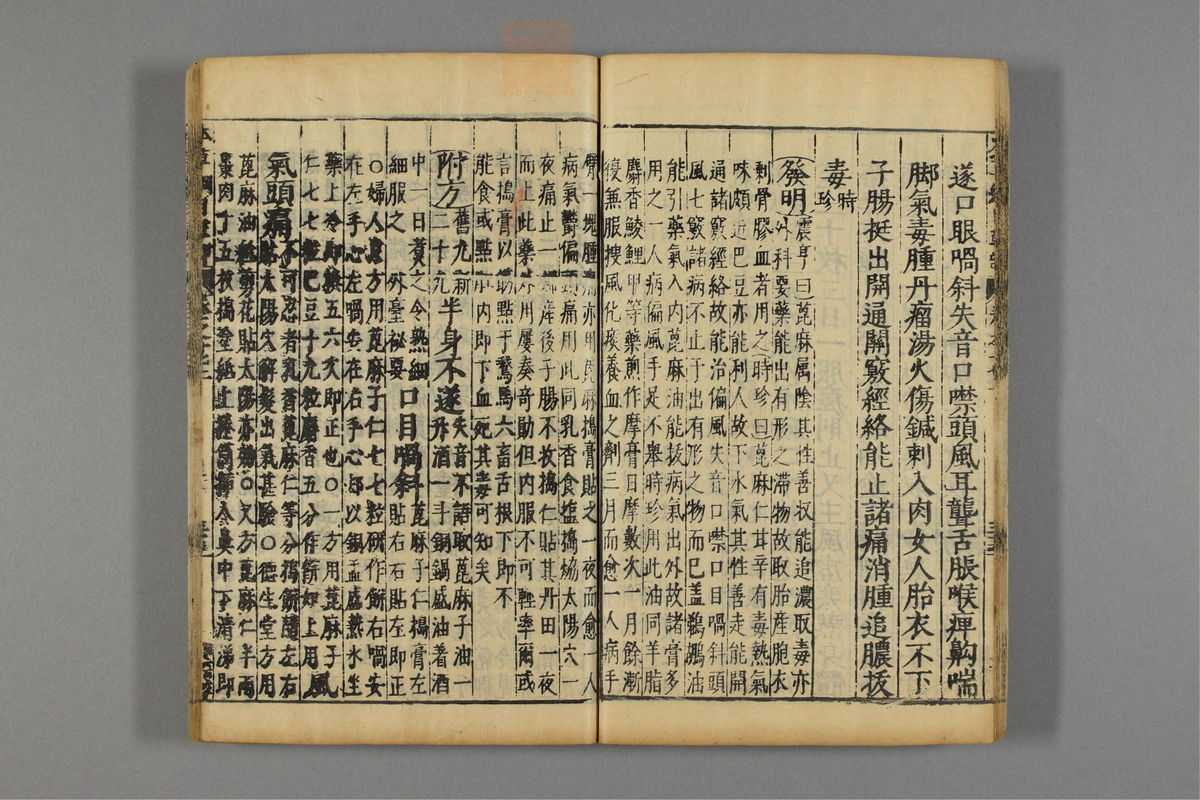 遂口眼喎斜失音口噤頭風耳聾舌脹喉痺齁喘
脚氣毒腫丹瘤湯火傷鍼刺入肉女人胎衣不下
子腸挺出開通關竅經絡能止諸痛消腫追膿拔
毒時珍
發明震亨曰蓖麻属陰其性善收能追濃取毒亦
外科要藥能出有形之滯物故取胎産胞衣
剩骨膠血者用之時珍曰蓖麻仁甘辛有毒熱氣
味頗近巴豆亦能利人故下水氣其性善走能開
通諸竅經絡故能治偏風失音口噤口目喎斜頭
風七竅諸病不止于出有形之物而已盖鵜鶘油
能引藥氣入内蓖麻油能拔病氣出外故諸膏多
用之一人病偏風手足不舉時珍用此油同羊脂
麝香鯪鯉甲等藥煎作摩膏日摩數次一月餘漸
復無服搜風化痰養血之劑三月而愈一人病手
臂一塊腫痛亦用蓖麻搗膏貼之一夜而愈一人
病氣鬱偏頭痛用此同乳香食塩搗熁太陽穴一
夜痛止一婦産後子腸不收搗仁貼其丹田一夜
而止此藥外用屢奏奇助但内服不可輕率爾或
言搗膏以筯點于鵞馬六畜舌根下即不
能食或點肛内即下血死其毒可知矣
附方舊九新二十九半身不遂失音不語取蓖麻子油一
升酒一斗銅鍋盛油著酒
中一日煑之令熟細
細服之 外臺祕要口目喎斜蓖麻子仁搗膏左
貼右右貼左即正
〇婦人良方用蓖麻子仁七七粒研作餅右喎安
在左手心左喎安在右手心却以銅盂盛熱水坐
藥上冷即換五六次即正也〇一方用蓖麻子
仁七七粒巴豆十九粒麝香五分作餅如上用風
氣頭痛不可忍者乳香蓖麻仁等分搗餅隨左右
貼太陽穴解髮出氣甚驗〇德生堂方用
蓖麻油紙剪花貼太陽亦効〇又方蓖麻仁半兩
棗肉十五枚搗塗紙上捲筒挿入鼻中下清涕即